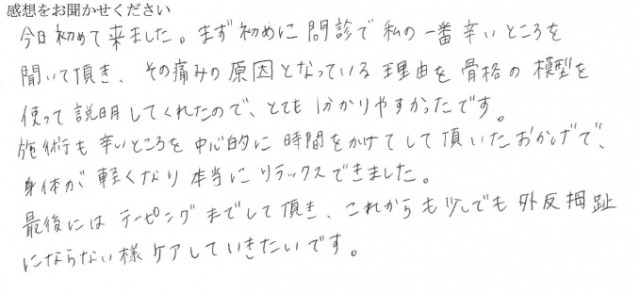 感想をお聞かせください
今日初めて来ました。まず初めに問診で私の一番辛いところを
聞いて頂き、その痛みの原因となっている理由を骨格の模型を
使って説明してくれたので、とても分かりやすかったです。
施術も辛いところを中心的に時間をかけてして頂いたおかげで、
身体が軽くなり本当にリラックスできました。
最後にはテーピングまでして頂き、これからも少しでも外反拇趾
にならない様ケアしていきたいです。